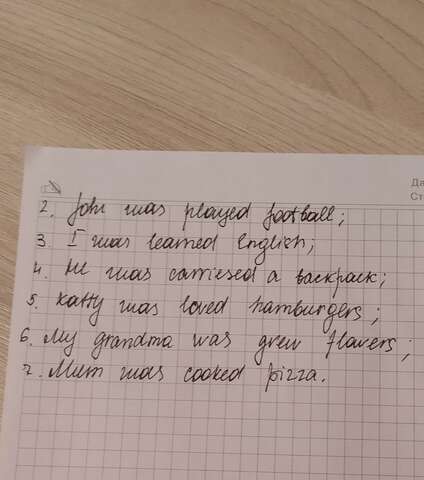 Да
Ст
2. John was played football;
3. I was learned English;
4. He was carriesed a backpack;
5. Katty was loved hamburgers;
6. My grandma was grew flowers;
7. Mum was cooked pizza.